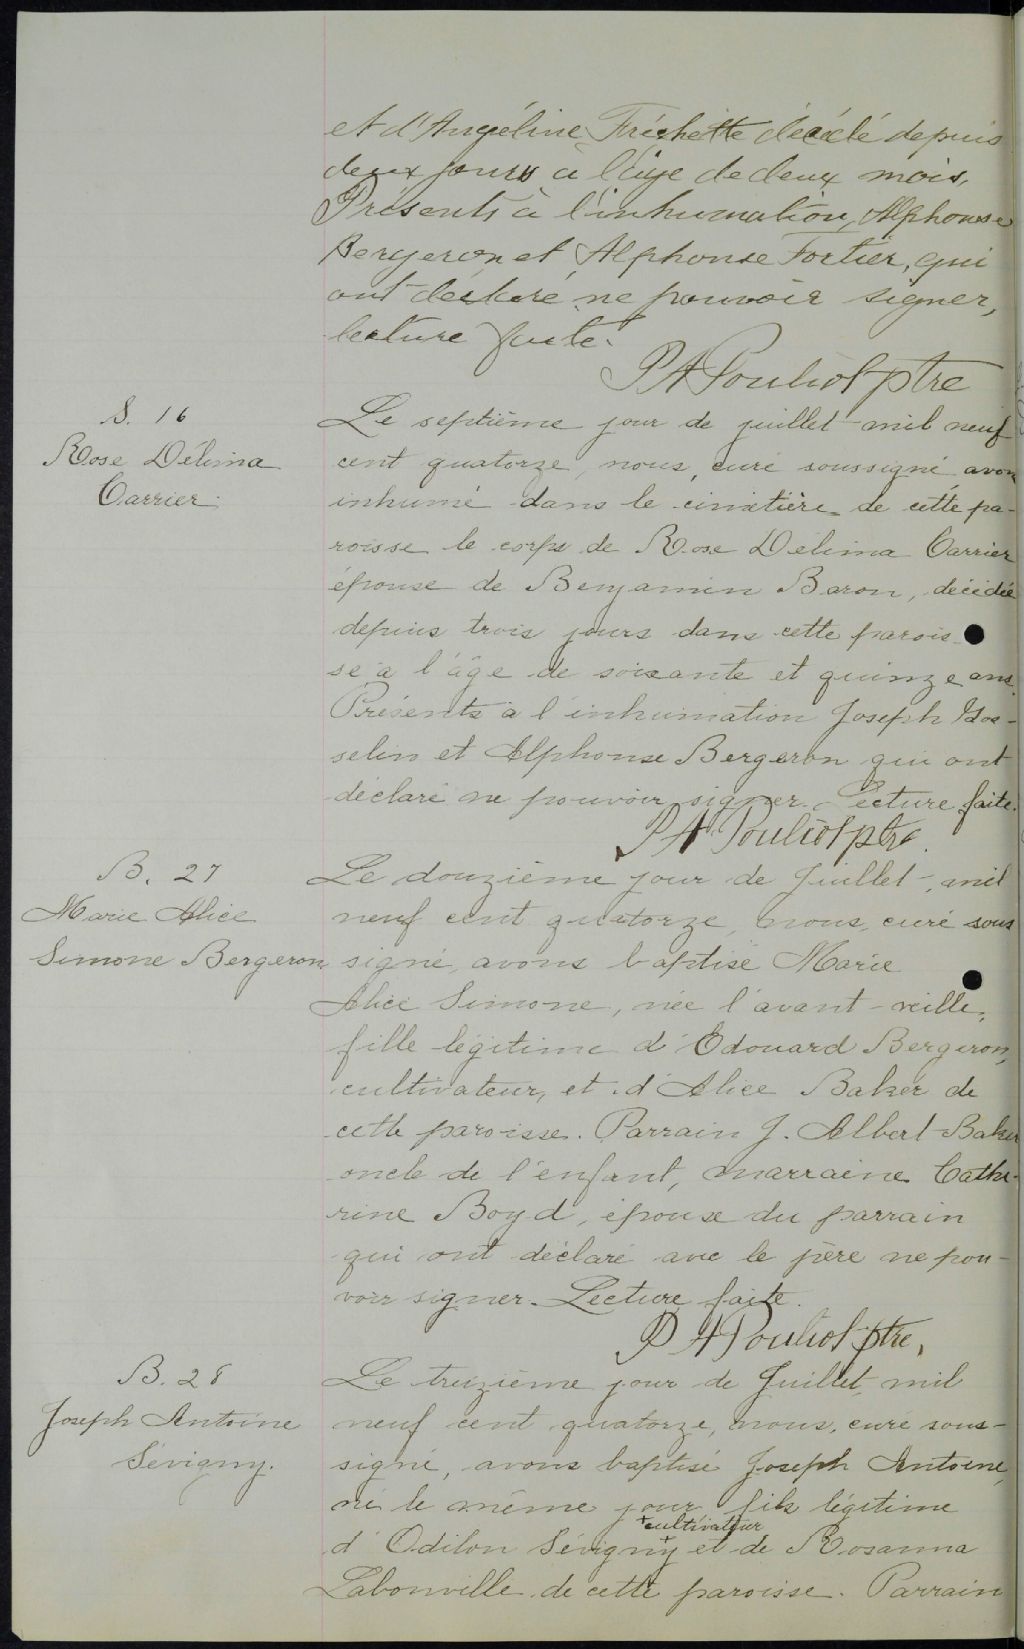 et d'Angéline Fréchette décédé depuis
deux jours à l'âge de deux mois.
Présents à l'inhumation, Alphonse
Bergeron et Alphonse Fortier, qui
ont déclaré ne pouvoir signer,
lecture faite.
P A Pouliot ptre
S. 16
Rose Délima
Carrier.
Le septième jour de juillet mil neuf
cent quatorze, nous, curé soussigné avons
inhumé dans le cimetière de cette pa-
roisse le corps de Rose Délima Carrier
épouse de Benjamin Baron, décédée
depuis trois jours dans cette parois-
se à l'âge de soixante et quinze ans.
Présents à l'inhumation Joseph Gos-
selin et Alphonse Bergeron qui ont
déclaré ne pouvoir signer. Lecture faite.
P A Pouliot ptre.
B. 27
Marie Alice
Simone Bergeron
Le douzième jour de Juillet, mil
neuf cent quatorze, nous, curé sous
signé, avons baptisé Marie
Alice Simone, née l'avant-veille,
fille légitime d'Edouard Bergeron,
cultivateur, et d'Alice Baker de
cette paroisse. Parrain J. Albert Baker
oncle de l'enfant, marraine Cathe-
rine Boyd, épouse du parrain
qui ont déclaré avec le père ne pou-
voir signer. Lecture faite.
P A Pouliot ptre,
B. 28
Joseph Antoine
Sévigny.
Le treizième jour de Juillet, mil
neuf cent quatorze, nous, curé sous-
signé, avons baptisé Joseph Antoine,
né le même jour fils légitime
+cultivateur
d'Odilon Sévigny + et de Rosanna
Labonville de cette paroisse. Parrain